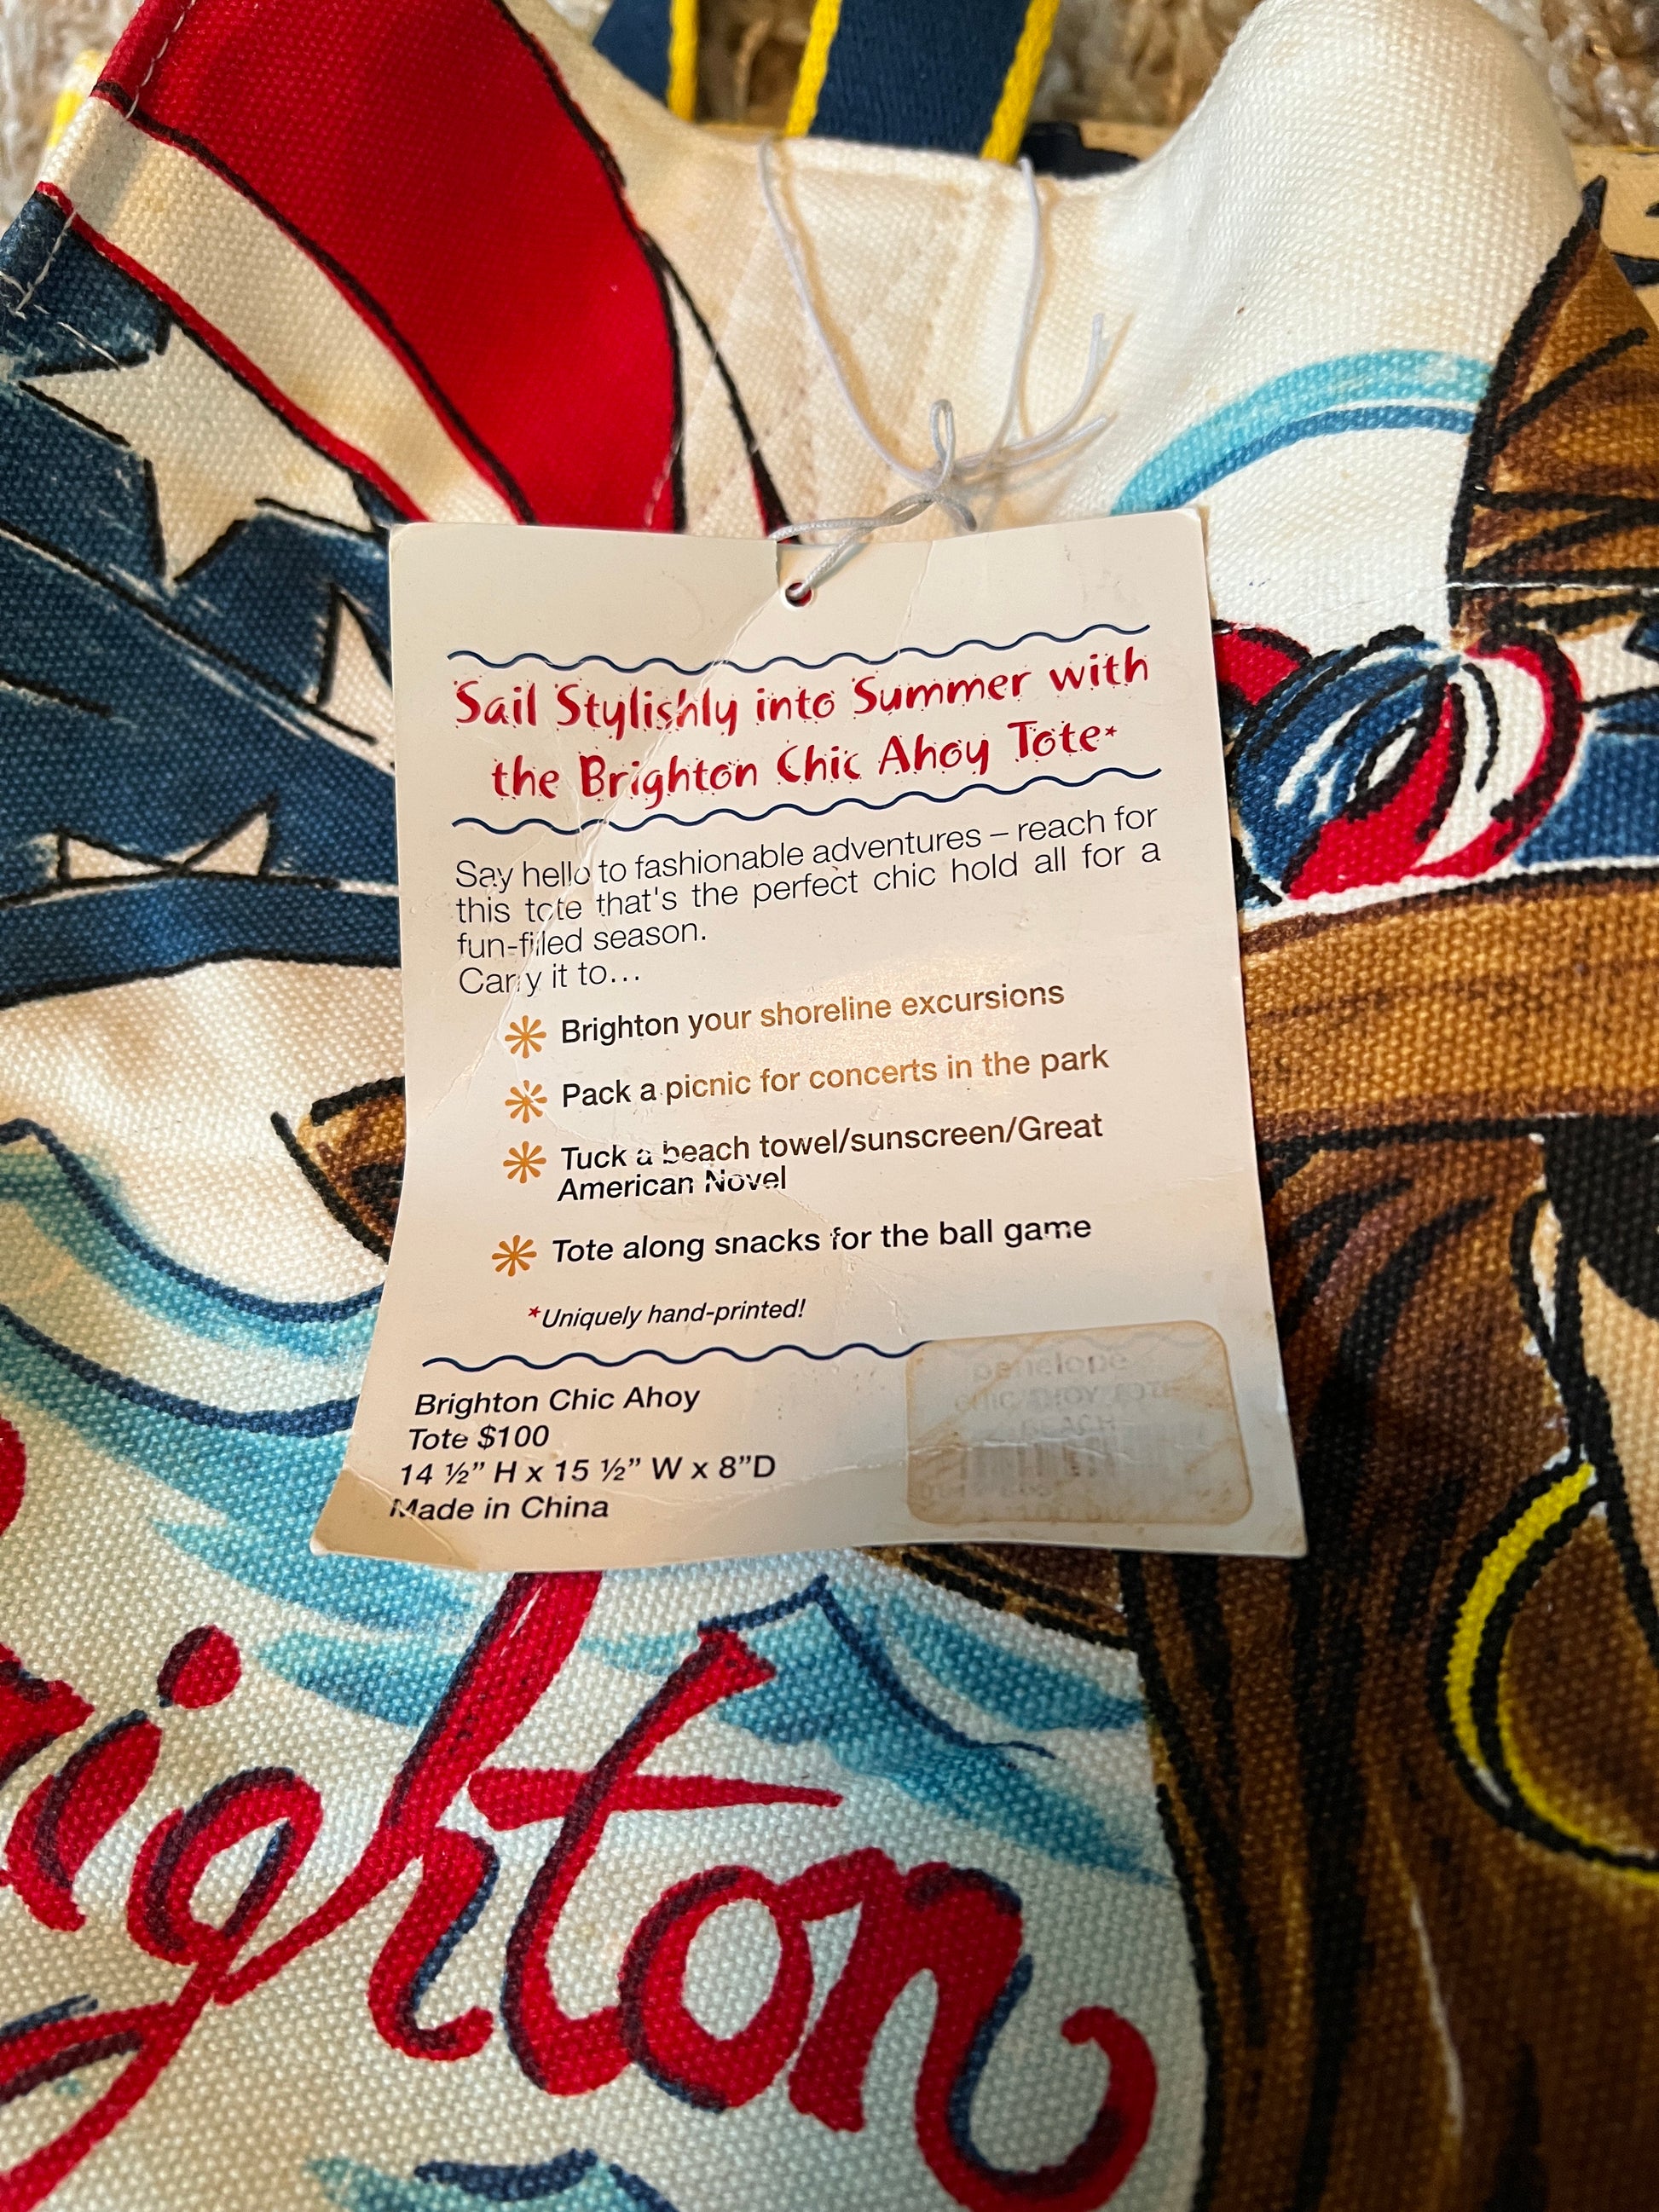 Sail Stylishly into Summer with
the Brighton Chic Ahoy Tote*
Say hello to fashionable adventures – reach for
this tote that's the perfect chic hold all for a
fun-filled season.
Carry it to...
Brighton your shoreline excursions
Pack a picnic for concerts in the park
Tuck a beach towel/sunscreen/Great
American Novel
Tote along snacks for the ball game
*Uniquely hand-printed!
Brighton Chic Ahoy
Tote $100
14 ½” H x 15 ½” W x 8”D
Made in China
penelope
CHIC AHOY TOTE
BEACH
righton